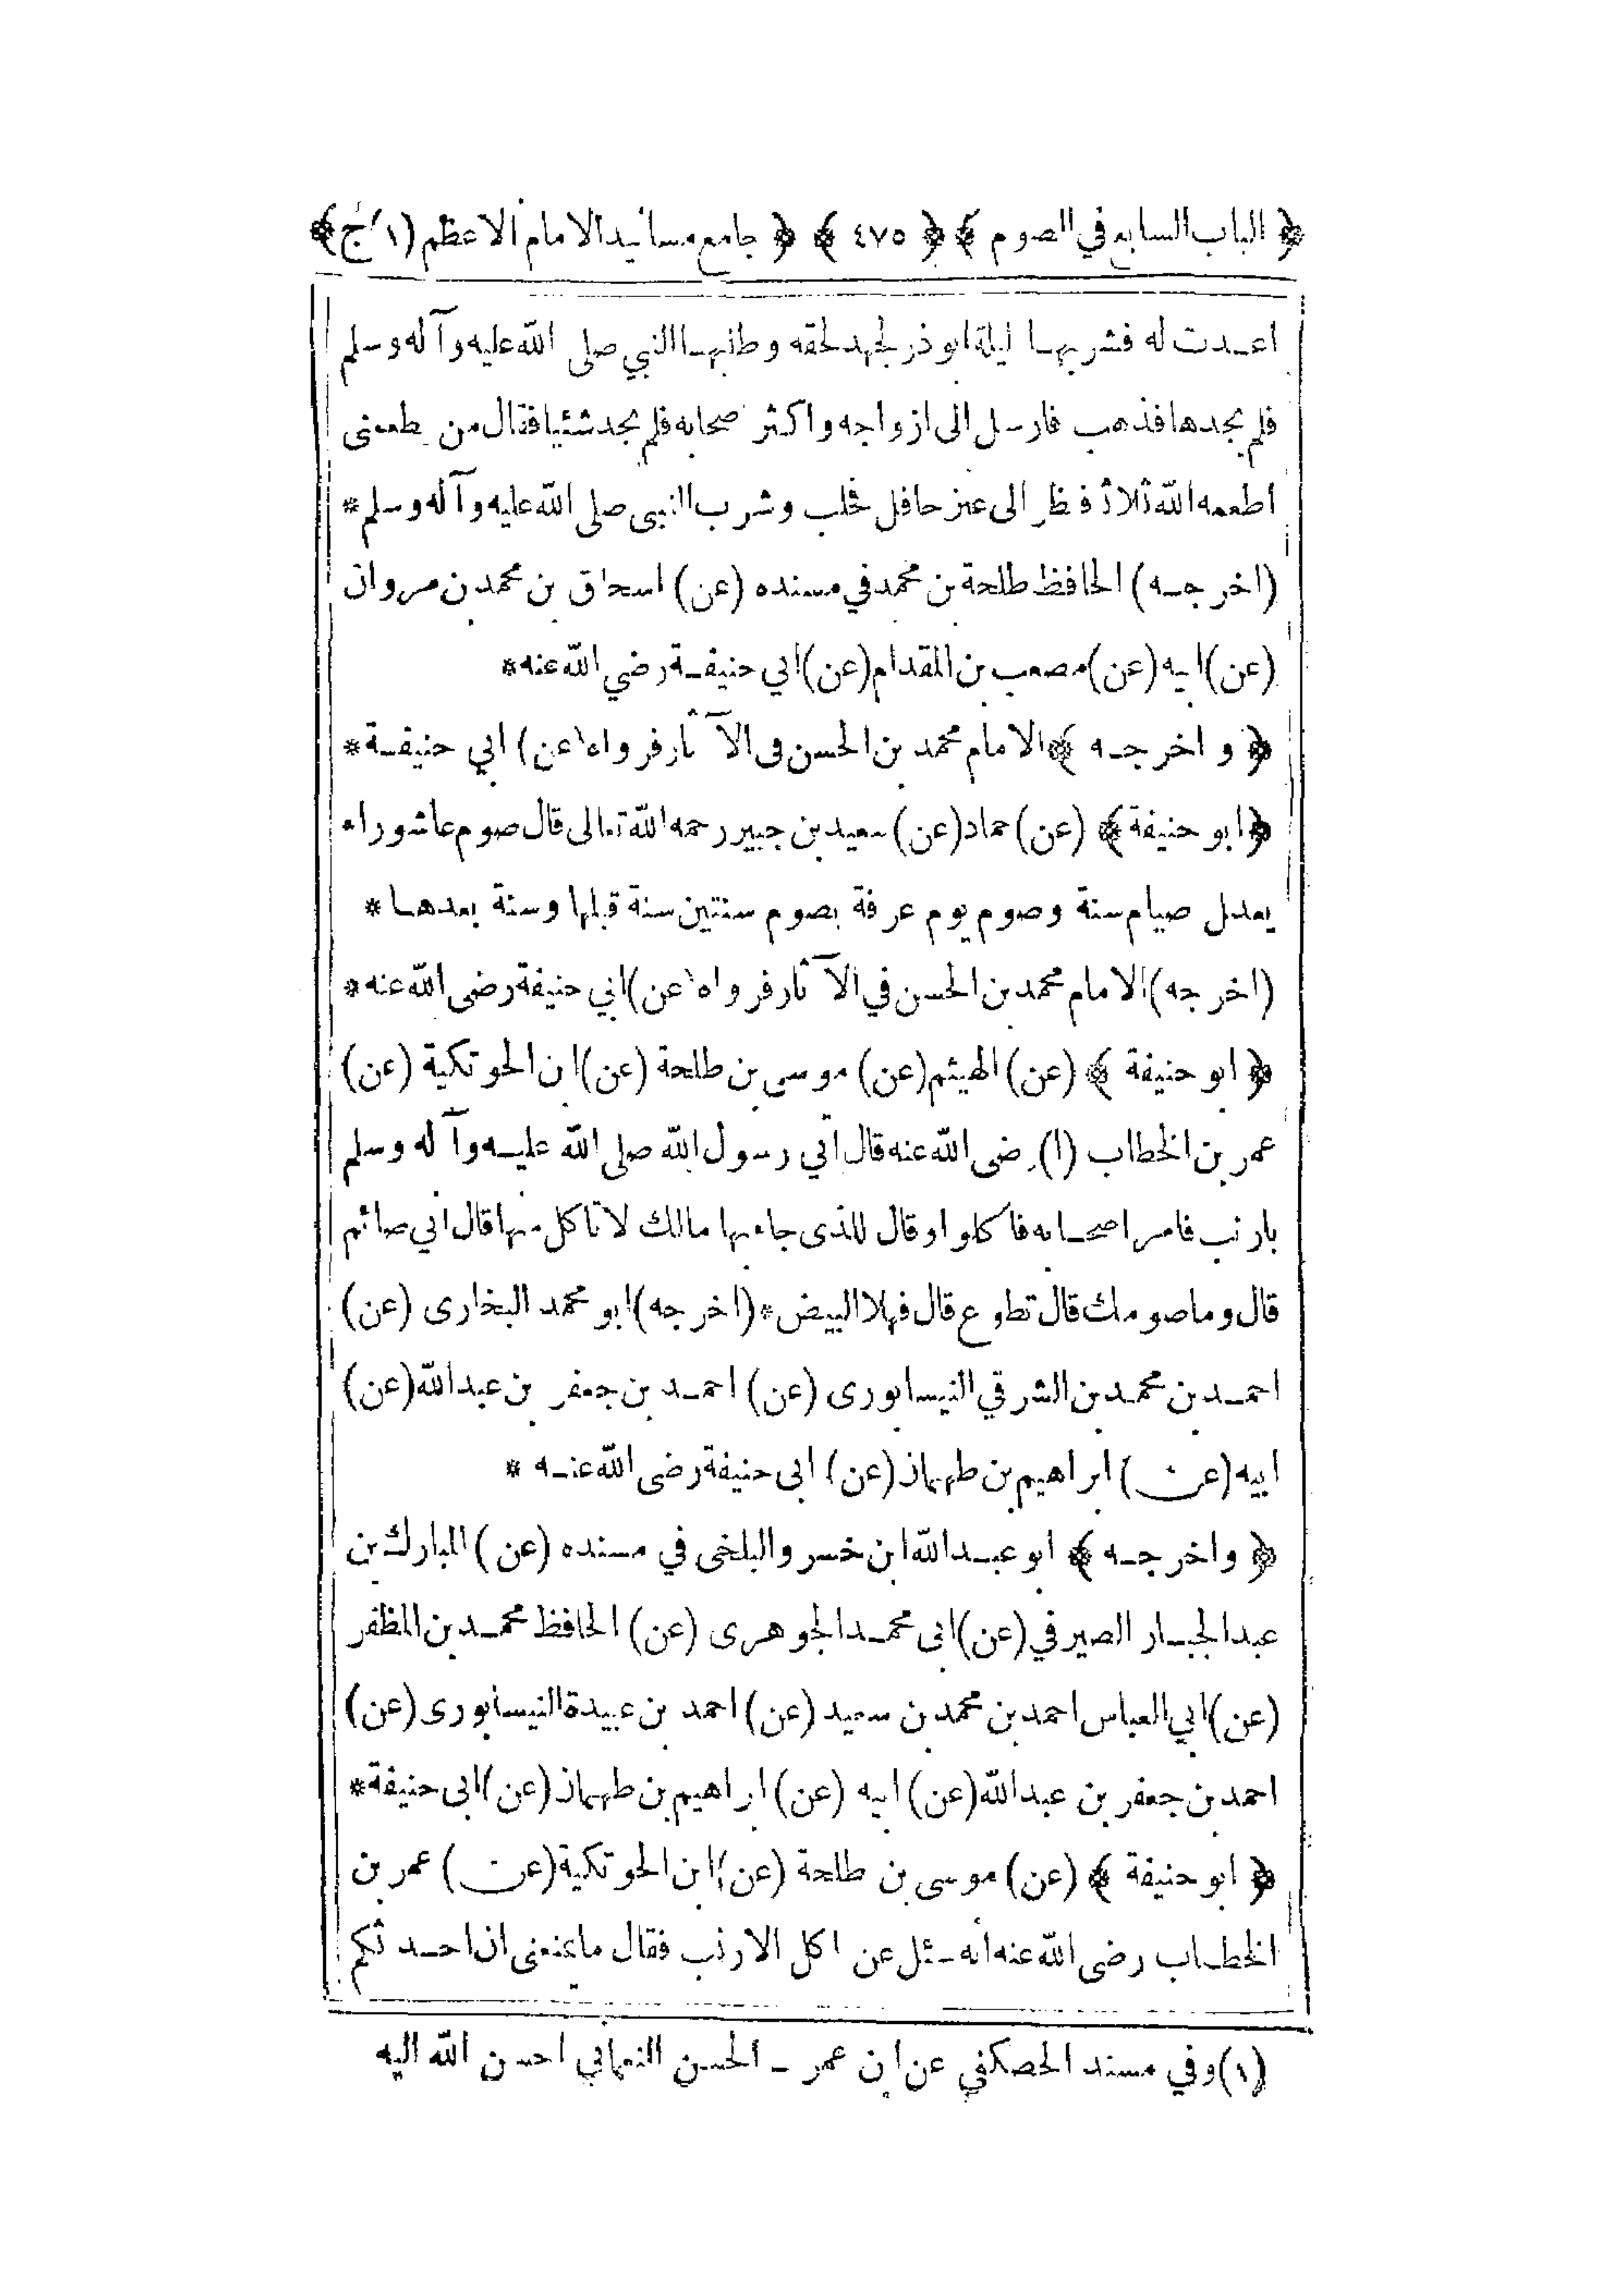 ﴿ الباب السابع في الصوم ﴾ ﴿ ٤٧٥ ﴾ ﴿ جامع مسانيد الامام الاعظم (١/ج) ﴾
اعدت له فشربها ليلة ابو ذر لجهد لحقه وطلبها النبي صلى الله عليه وآله وسلم
فلم يجدها فذهب فارسل الى ازواجه واكثر صحابه فلم يجد شئيا فقال من طعمنى
اطعمه الله ثلاثا فنظر الى عنز حافل فحلب وشرب النبى صلى الله عليه وآله وسلم *
(اخرجه) الحافظ طلحة بن محمد في مسنده (عن) اسحاق بن محمد بن مروان
(عن) ابيه (عن) مصعب بن المقدام (عن) ابي حنيفة رضي الله عنه *
﴿ و اخرجه ﴾ الامام محمد بن الحسن فى الآثار فرواه (عن) ابي حنيفة *
﴿ ابو حنيفة ﴾ (عن) حماد (عن) سعيد بن جبير رحمه الله تعالى قال صوم عاشوراء
يعدل صيام سنة وصوم يوم عرفة بصوم سنتين سنة قبلها وسنة بعدها *
(اخرجه) الامام محمد بن الحسن في الآثار فرواه (عن) ابي حنيفة رضى الله عنه *
﴿ ابو حنيفة ﴾ (عن) الهيثم (عن) موسى بن طلحة (عن) ابن الحوتكية (عن)
عمر بن الخطاب (١) رضى الله عنه قال اتي رسول الله صلى الله عليه وآله وسلم
بارنب فامر اصحابه فاكلوا وقال للذى جاء بها مالك لا تاكل منها قال انى صائم
قال وما صومك قال تطوع قال فهلا البيض * (اخرجه) ابو محمد البخارى (عن)
احمد بن محمد بن الشرقي النيسابورى (عن) احمد بن جعفر بن عبد الله (عن)
ابيه (عن) ابراهيم بن طهمان (عن) ابى حنيفة رضى الله عنه *
﴿ واخرجه ﴾ ابو عبد الله ابن خسرو البلخى في مسنده (عن) المبارك بن
عبد الجبار الصيرفي (عن) ابى محمد الجوهرى (عن) الحافظ محمد بن المظفر
(عن) ابي العباس احمد بن محمد بن سعيد (عن) احمد بن عبيدة النيسابورى (عن)
احمد بن جعفر بن عبد الله (عن) ابيه (عن) ابراهيم بن طهمان (عن) ابى حنيفة *
﴿ ابو حنيفة ﴾ (عن) موسى بن طلحة (عن) ابن الحوتكية (عن) عمر بن
الخطاب رضى الله عنه انه سئل عن اكل الارنب فقال ما يمنعنى ان احدثكم
(١) وفي مسند الحصكفي عن ابن عمر - الحسن النعماني احسن الله اليه